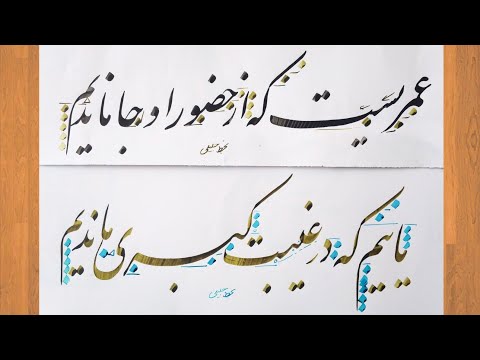 عمریست که از حضور او جا ماندیم
ماییم که در غیبت کبری ماندیم